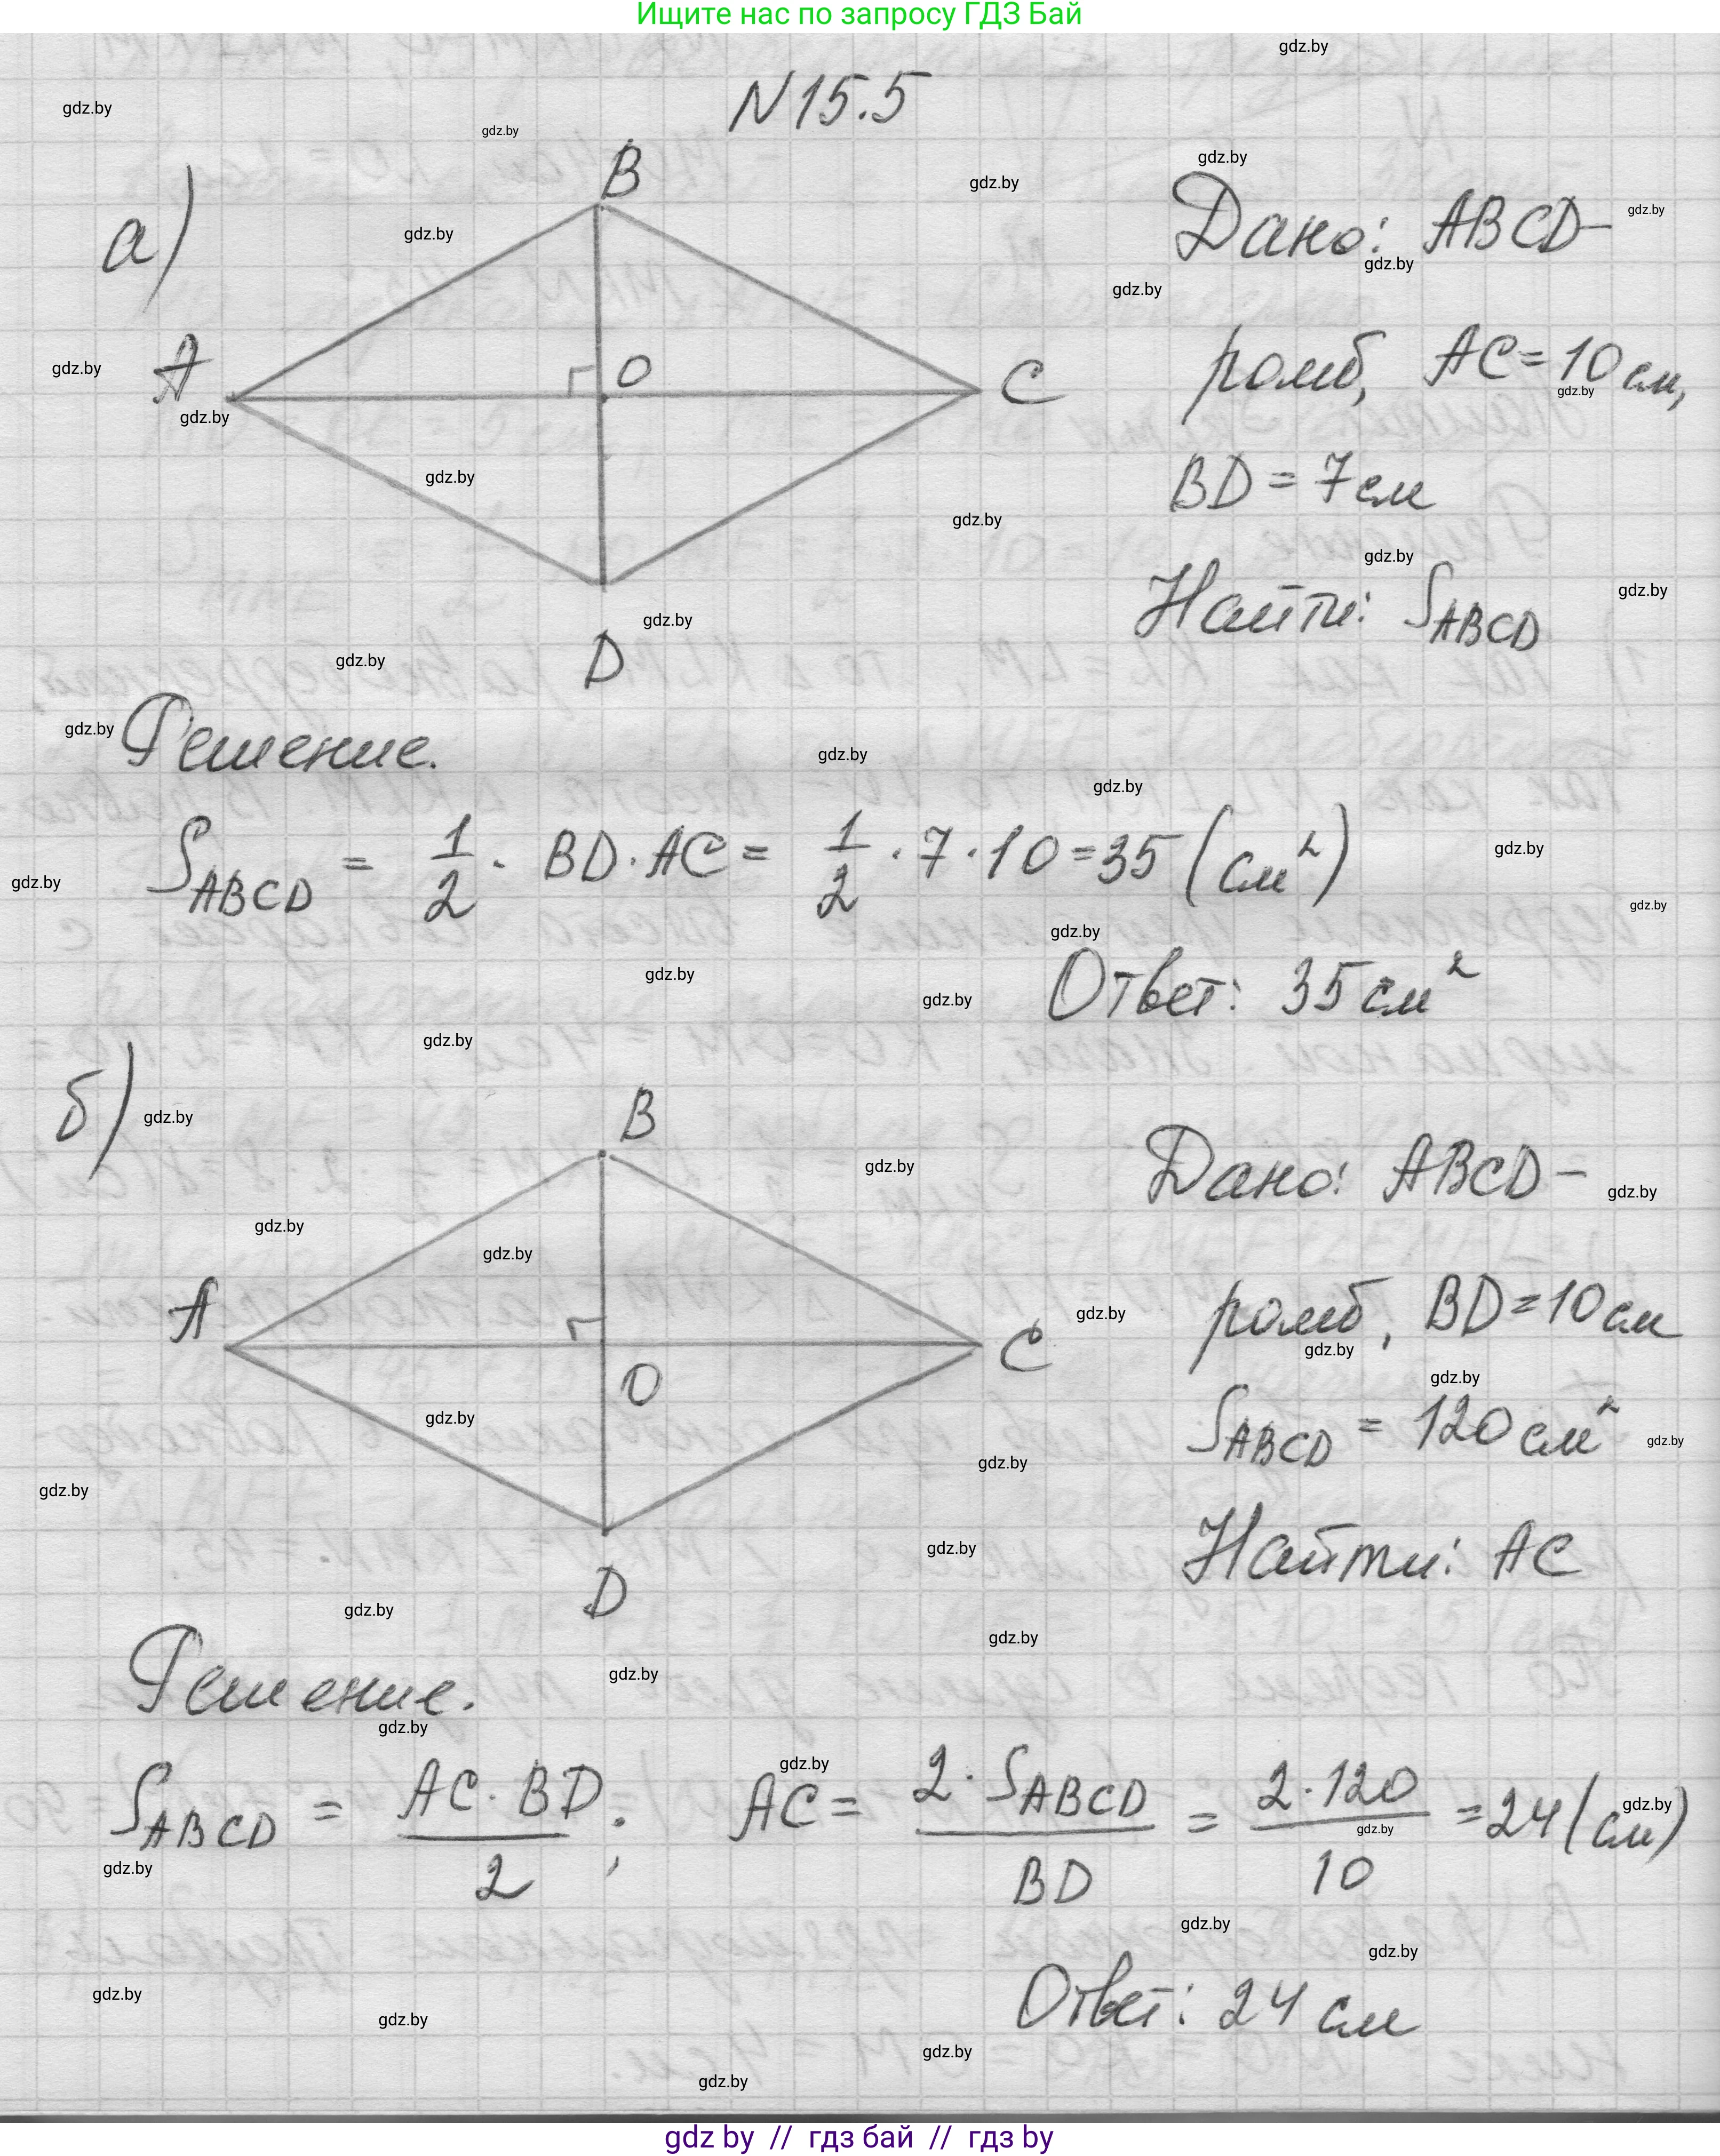 Ищите нас по запросу ГДЗ Бай
N 15.5
а)
B
A
O
C
D
Дано: ABCD-
ромб, AC = 10 см,
BD = 7 см
Найти: S ABCD
Решение.
S ABCD = 1/2 · BD · AC = 1/2 · 7 · 10 = 35 (см²)
Ответ: 35 см²
б)
B
A
O
C
D
Дано: ABCD-
ромб, BD = 10 см
S ABCD = 120 см²
Найти: AC
Решение.
S ABCD = AC · BD / 2 ; AC = 2 · S ABCD / BD = 2 · 120 / 10 = 24 (см)
Ответ: 24 см
gdz.by
gdz by // гдз бай // гдз by